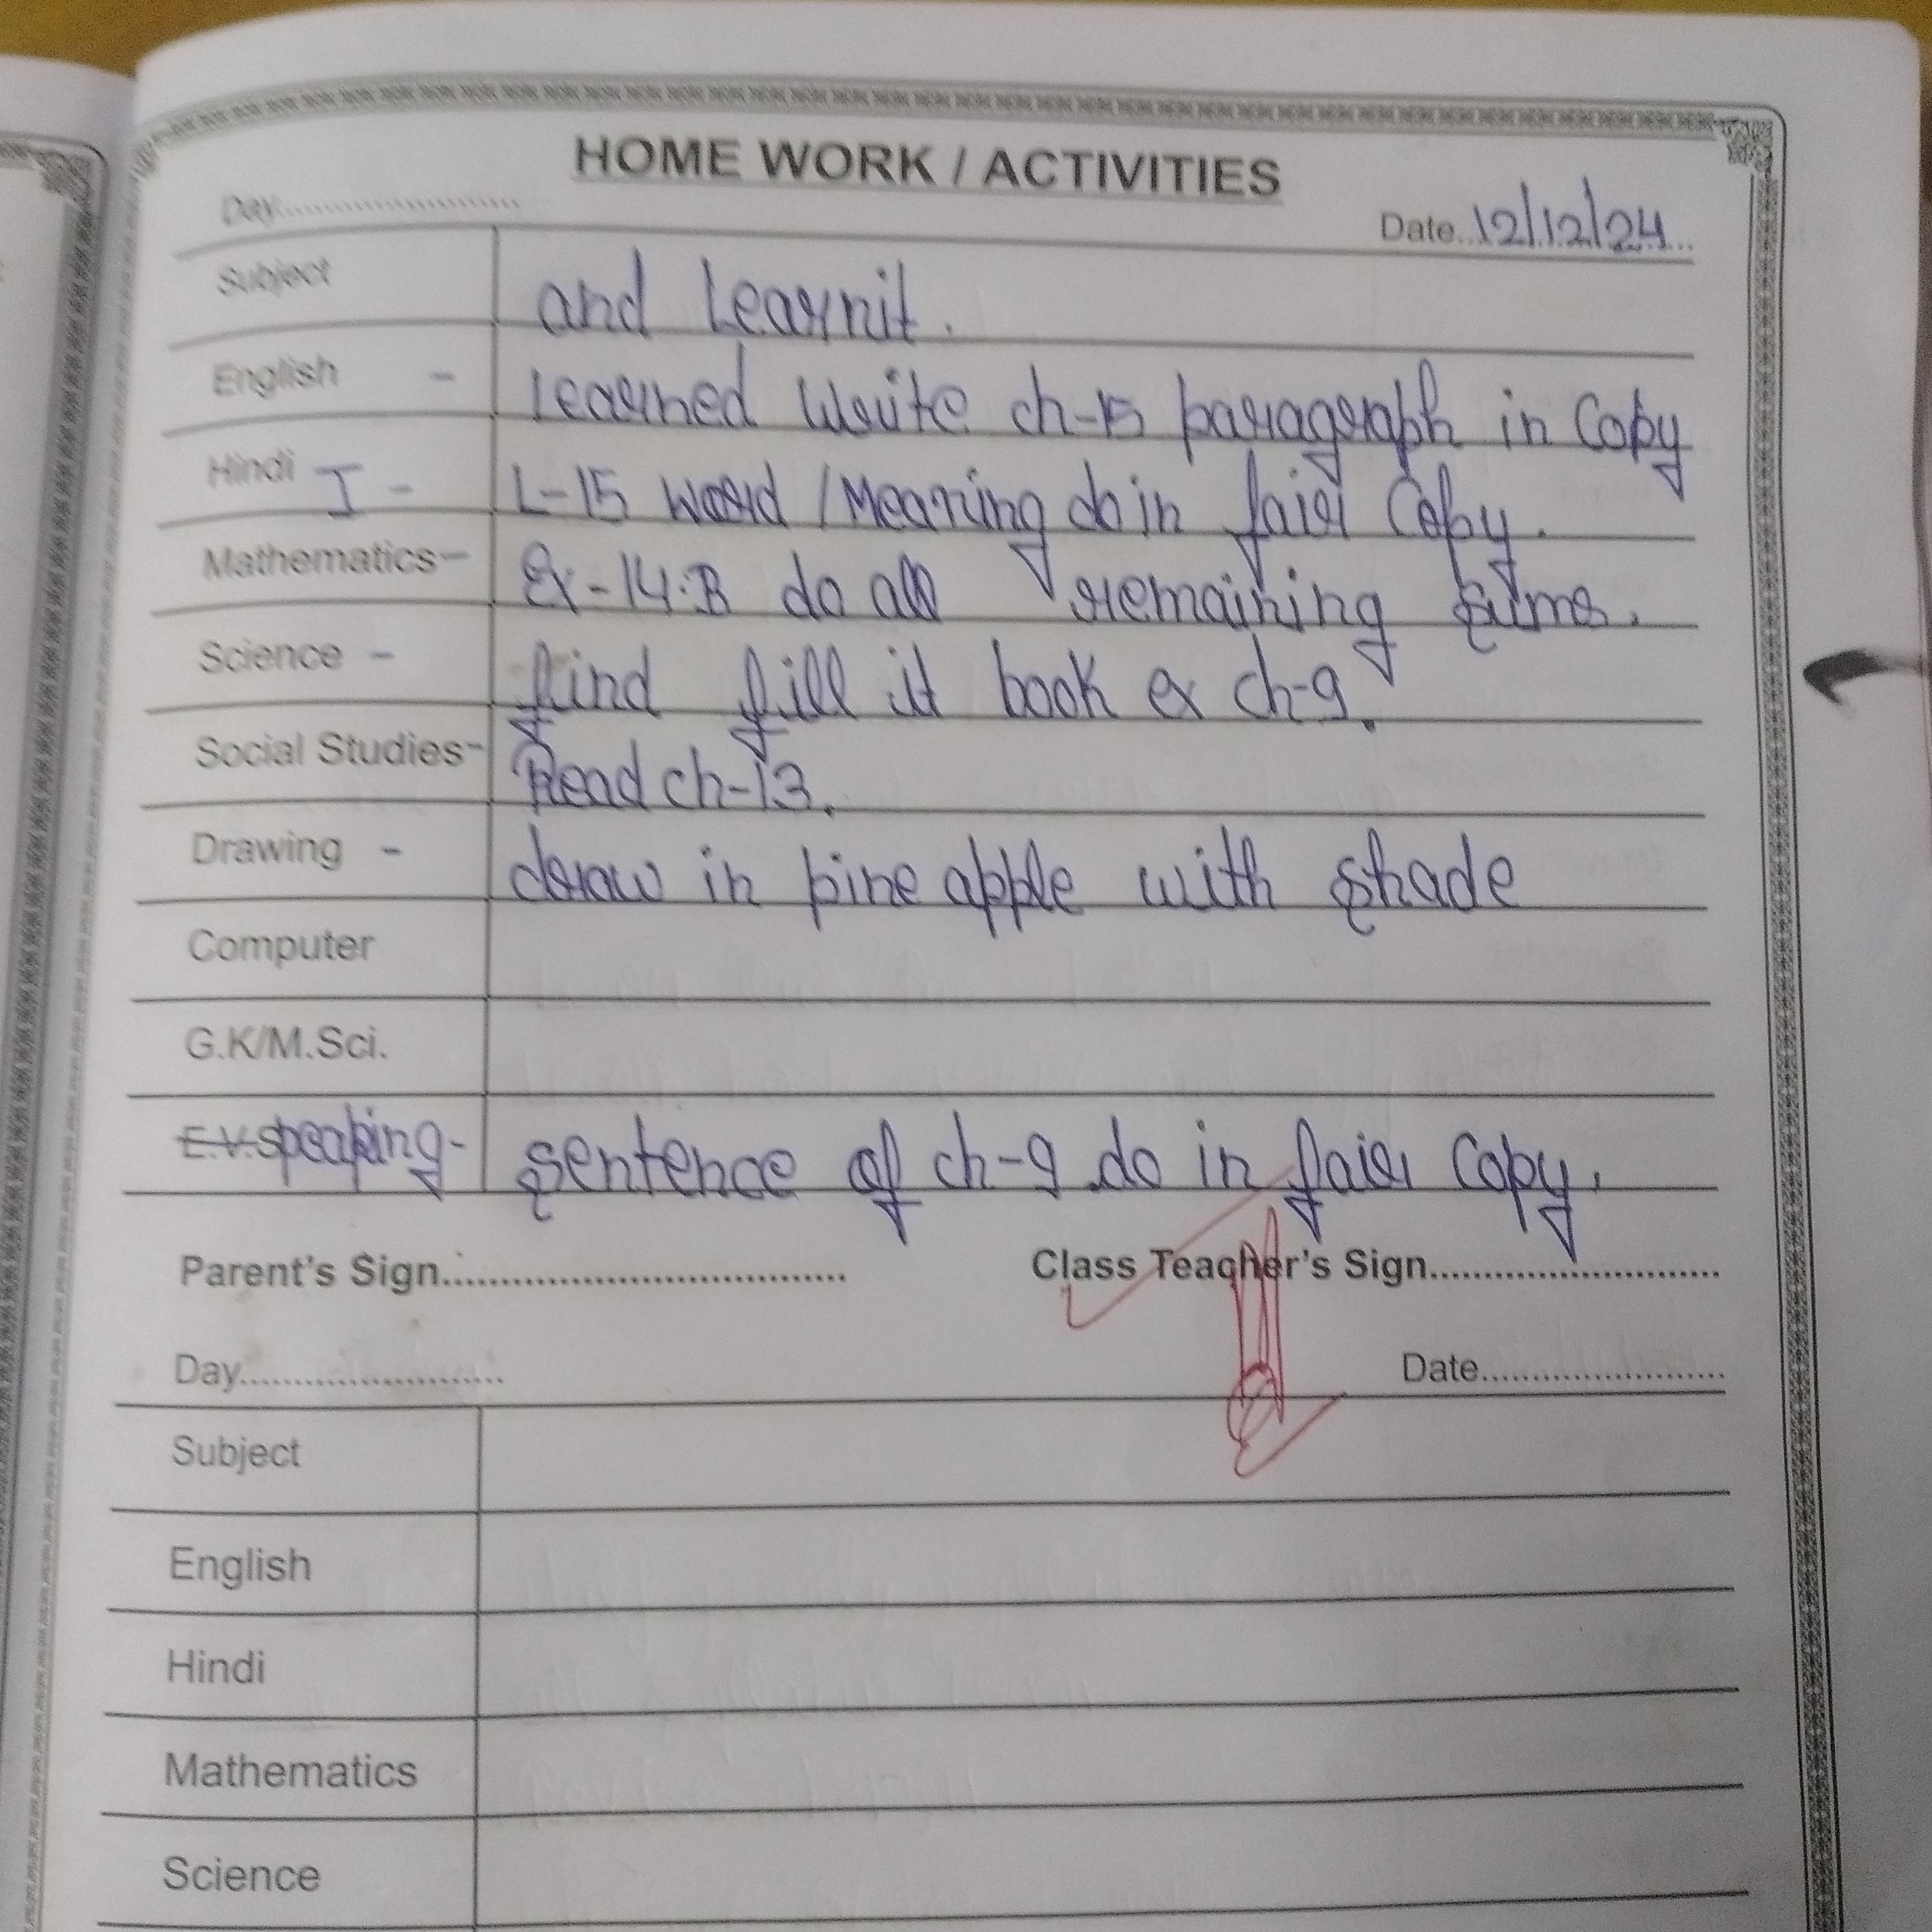 HOME WORK / ACTIVITIES
Day........................ Date 12/12/24
Subject and Learnit.
English - Learned Write ch-15 paragraph in Copy
Hindi I - L-15 Word / Meaning do in fair Copy.
Mathematics- Ex-14.B do all remaining sums.
Science - find fill it book ex ch-9.
Social Studies- Read ch-13.
Drawing - draw in pine apple with shade
Computer
G.K/M.Sci.
E.V.speaking- sentence of ch-9 do in fair Copy.
Parent's Sign........................................ Class Teacher's Sign.............................
Day.......................... Date.........................
Subject
English
Hindi
Mathematics
Science